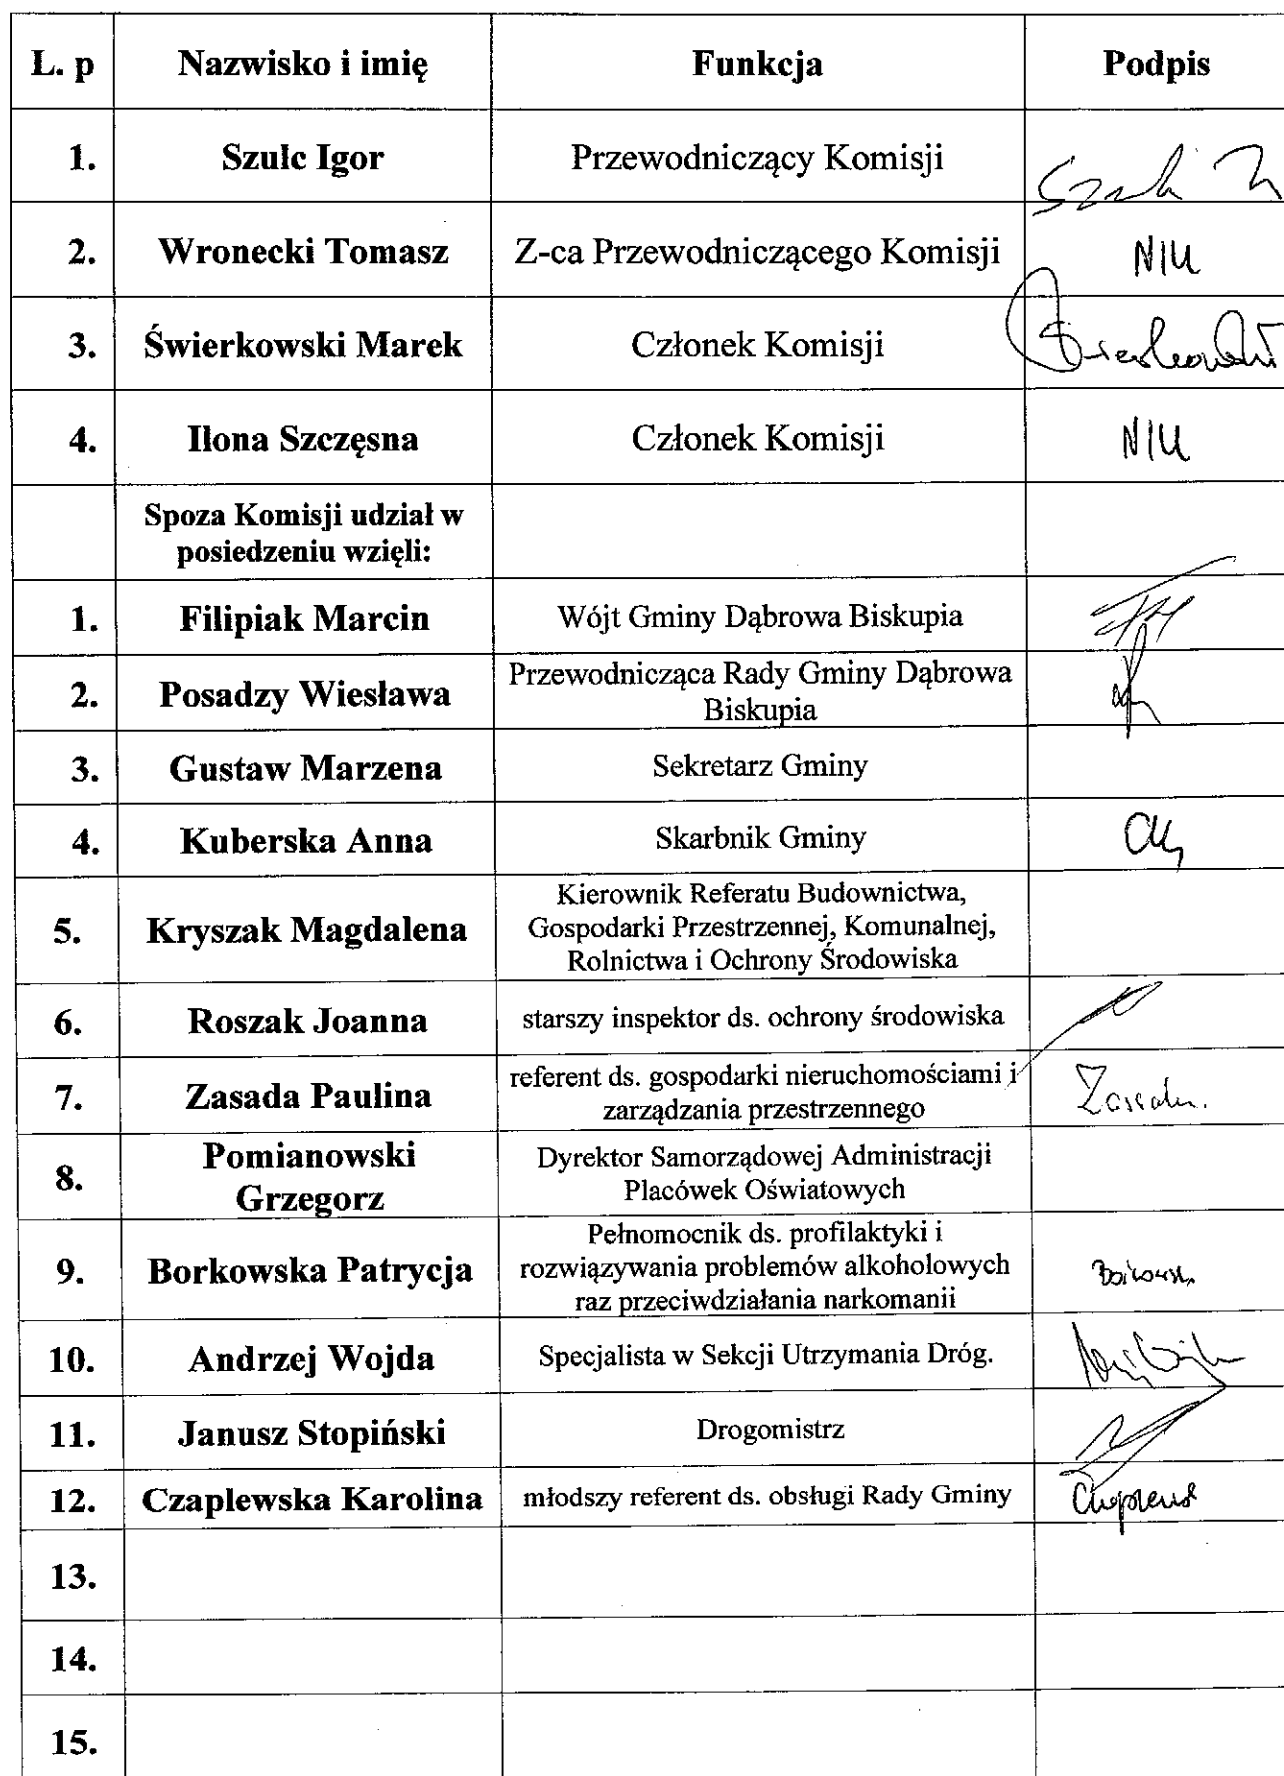 L. p Nazwisko i imię Funkcja Podpis
1. Szulc Igor Przewodniczący Komisji
2. Wronecki Tomasz Z-ca Przewodniczącego Komisji N/U
3. Świerkowski Marek Członek Komisji
4. Ilona Szczęsna Członek Komisji N/U
Spoza Komisji udział w
posiedzeniu wzięli:
1. Filipiak Marcin Wójt Gminy Dąbrowa Biskupia
2. Posadzy Wiesława Przewodnicząca Rady Gminy Dąbrowa
Biskupia
3. Gustaw Marzena Sekretarz Gminy
4. Kuberska Anna Skarbnik Gminy
5. Kryszak Magdalena Kierownik Referatu Budownictwa,
Gospodarki Przestrzennej, Komunalnej,
Rolnictwa i Ochrony Środowiska
6. Roszak Joanna starszy inspektor ds. ochrony środowiska
7. Zasada Paulina referent ds. gospodarki nieruchomościami i
zarządzania przestrzennego
8. Pomianowski
Grzegorz
Dyrektor Samorządowej Administracji
Placówek Oświatowych
9. Borkowska Patrycja Pełnomocnik ds. profilaktyki i
rozwiązywania problemów alkoholowych
raz przeciwdziałania narkomanii
10. Andrzej Wojda Specjalista w Sekcji Utrzymania Dróg.
11. Janusz Stopiński Drogomistrz
12. Czaplewska Karolina młodszy referent ds. obsługi Rady Gminy
13.
14.
15.